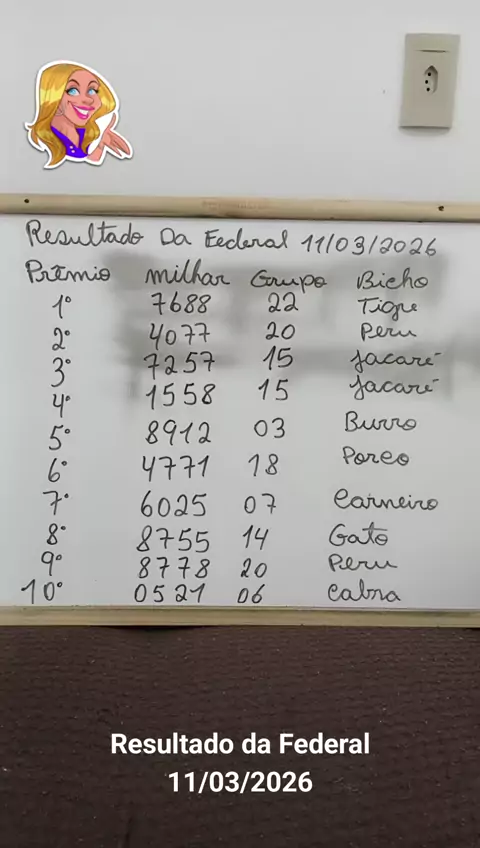 Resultado Da Federal 11/03/2026
Prêmio milhar Grupo Bicho
1° 7688 22 Tigre
2° 4077 20 Peru
3° 7257 15 Jacaré
4° 1558 15 Jacaré
5° 8912 03 Burro
6° 4771 18 Porco
7° 6025 07 Carneiro
8° 8755 14 Gato
9° 8778 20 Peru
10° 0521 06 Cabra
Resultado da Federal
11/03/2026